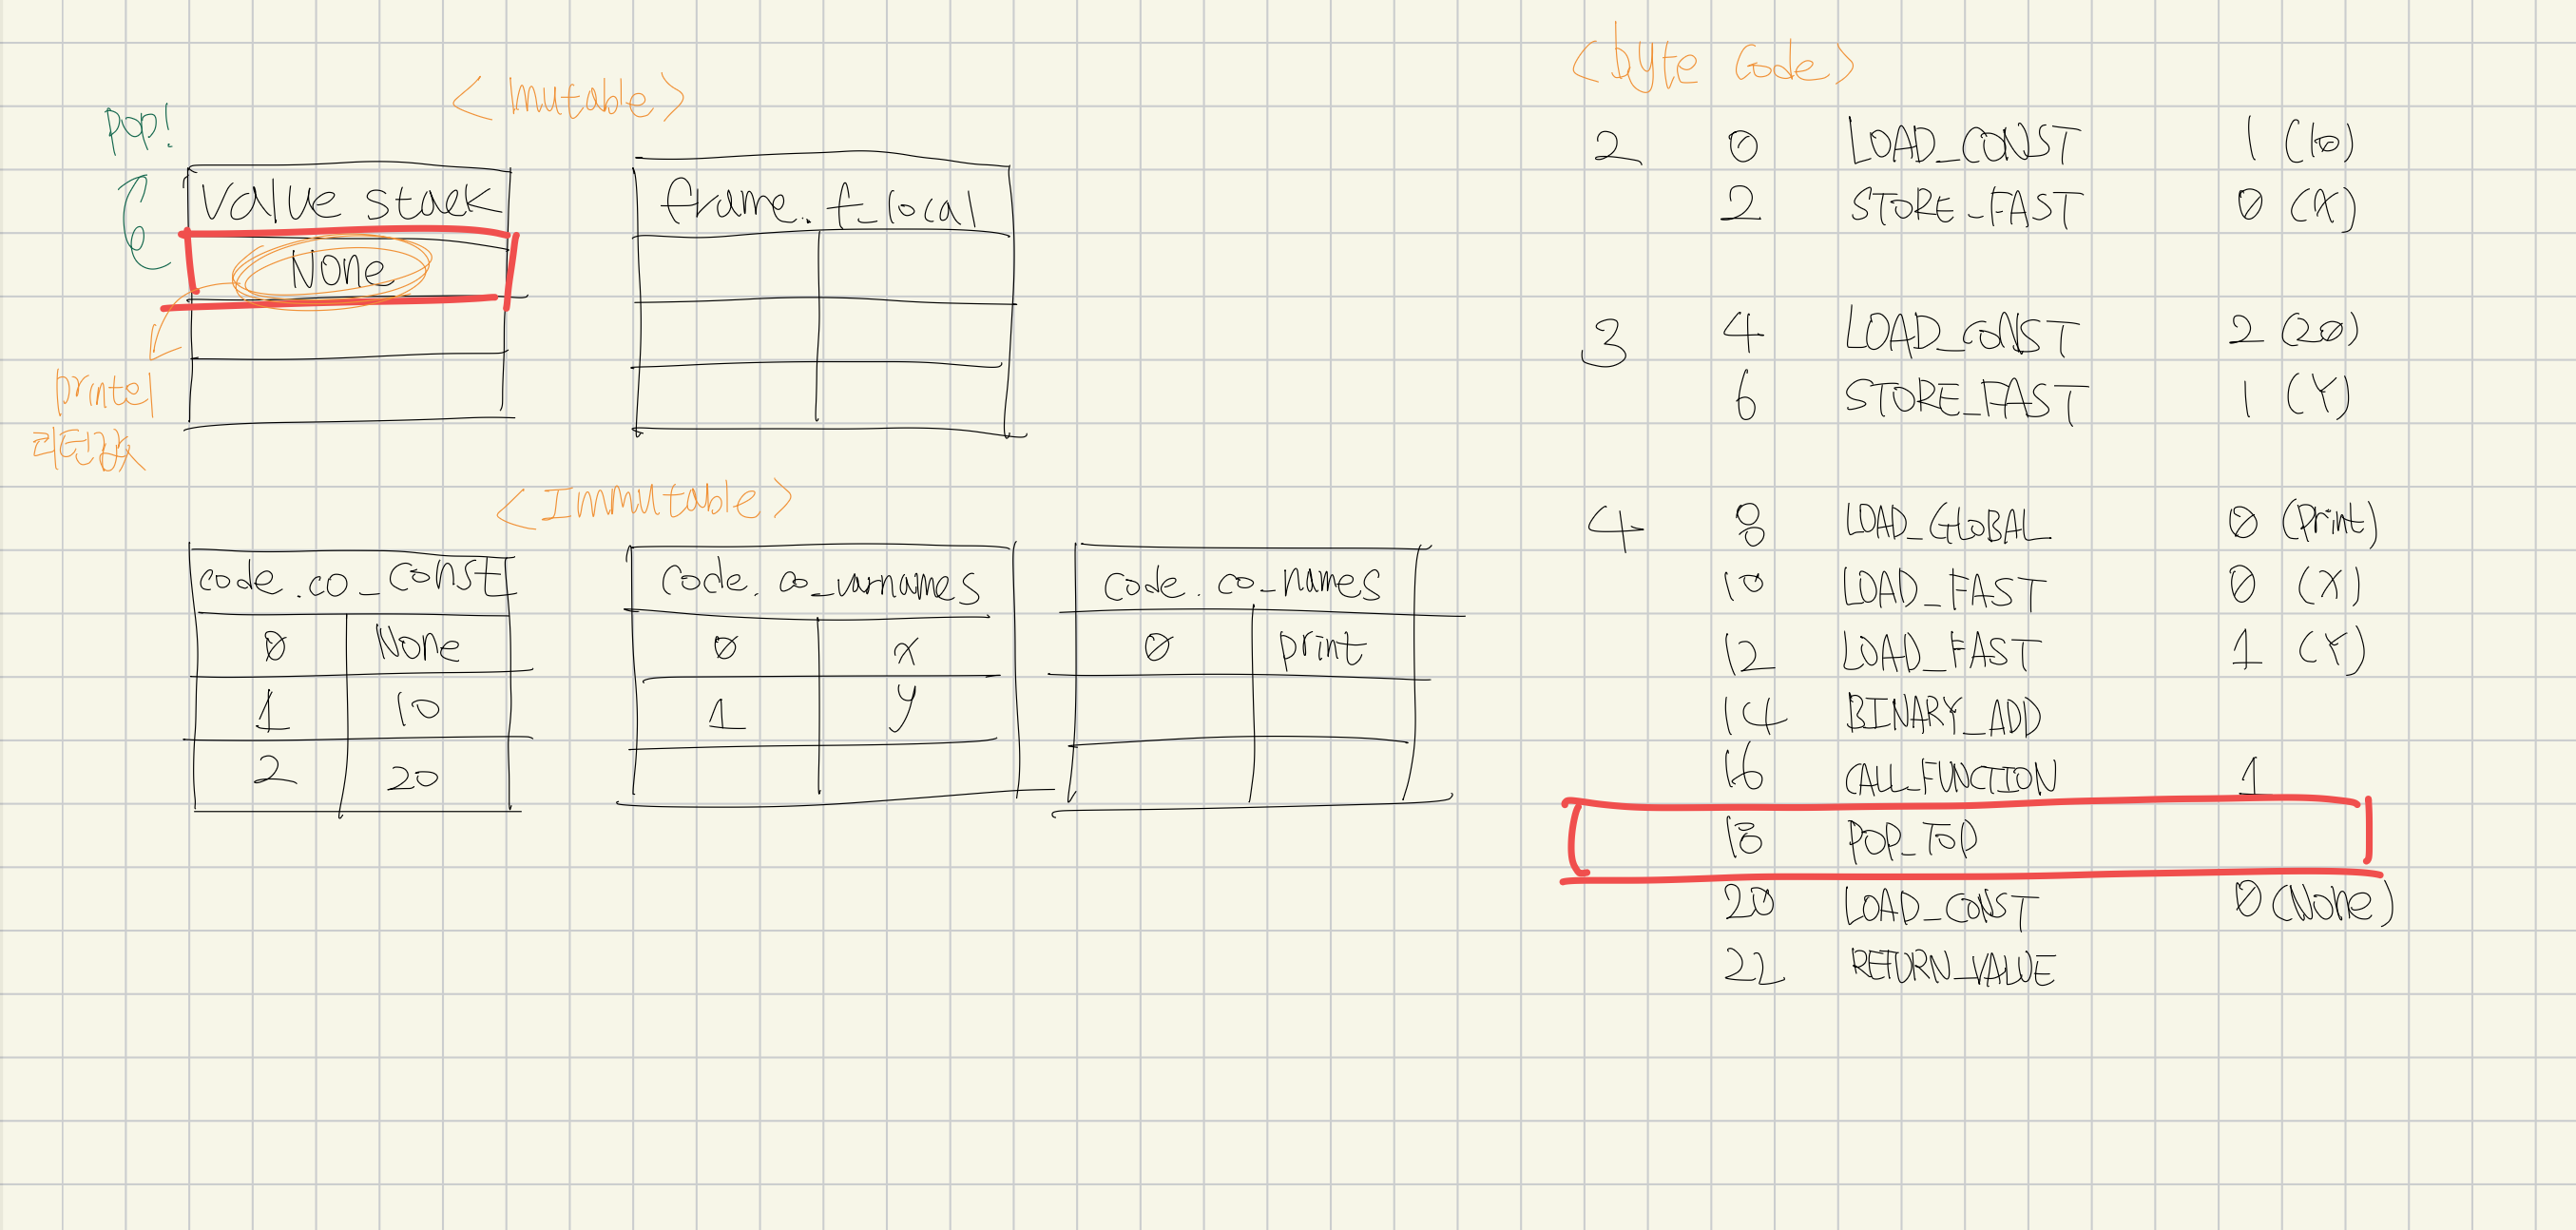 <Mutable>
pop!
value stack
None
print의
리턴값
frame.f_local
<Immutable>
code.co_const
0 None
1 10
2 20
code.co_varnames
0 x
1 y
code.co_names
0 print
<byte code>
2 0 LOAD_CONST 1 (10)
2 STORE_FAST 0 (X)
3 4 LOAD_CONST 2 (20)
6 STORE_FAST 1 (Y)
4 8 LOAD_GLOBAL 0 (print)
10 LOAD_FAST 0 (X)
12 LOAD_FAST 1 (Y)
14 BINARY_ADD
16 CALL_FUNCTION 1
18 POP_TOP
20 LOAD_CONST 0 (None)
22 RETURN_VALUE